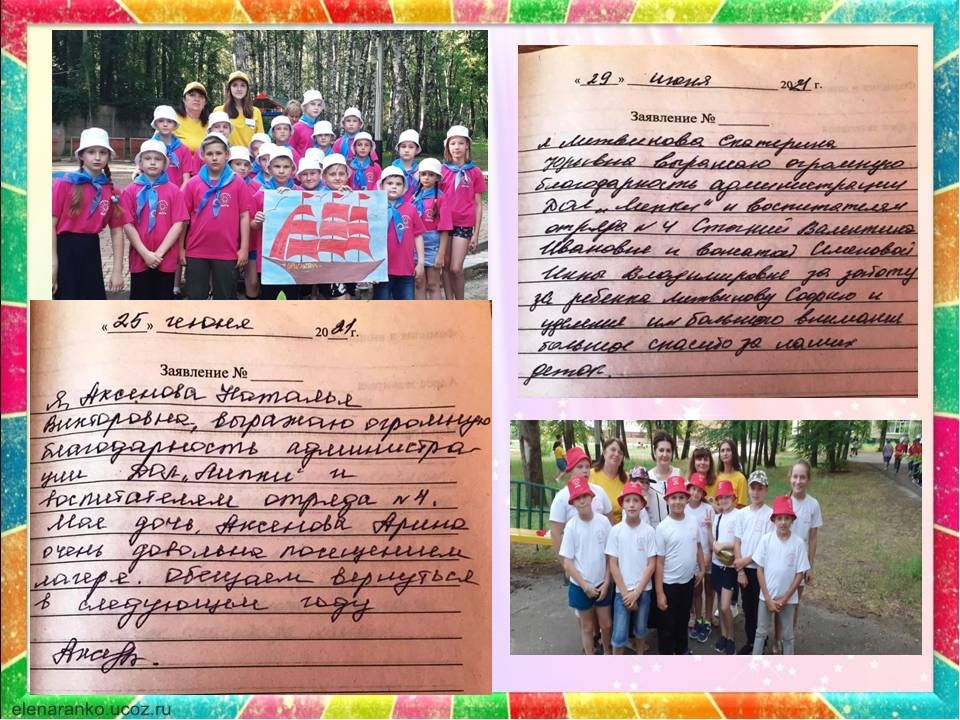 « 29 » июня 2021 г.
Заявление №
я Литвинова Екатерина
Юрьевна выражаю огромную
благодарность администрации
ДОЛ „Липки“ и воспитателям
отряда №4 Валентине
Ивановне и вожатой Семеновой
Инны Владимировне за заботу
за ребенка Литвинову Софию и
уделения им большого внимания
большое спасибо за наших
деток.
« 25 » июня 2021 г.
Заявление №
Я, Аксенова Наталья
Викторовна, выражаю огромную
благодарность администра-
ции ДОЛ „Липки“ и
воспитателям отряда №4.
Моя дочь, Аксенова Арина
очень довольна посещением
лагеря. Обещаем вернуться
в следующем году
elenaranko.ucoz.ru